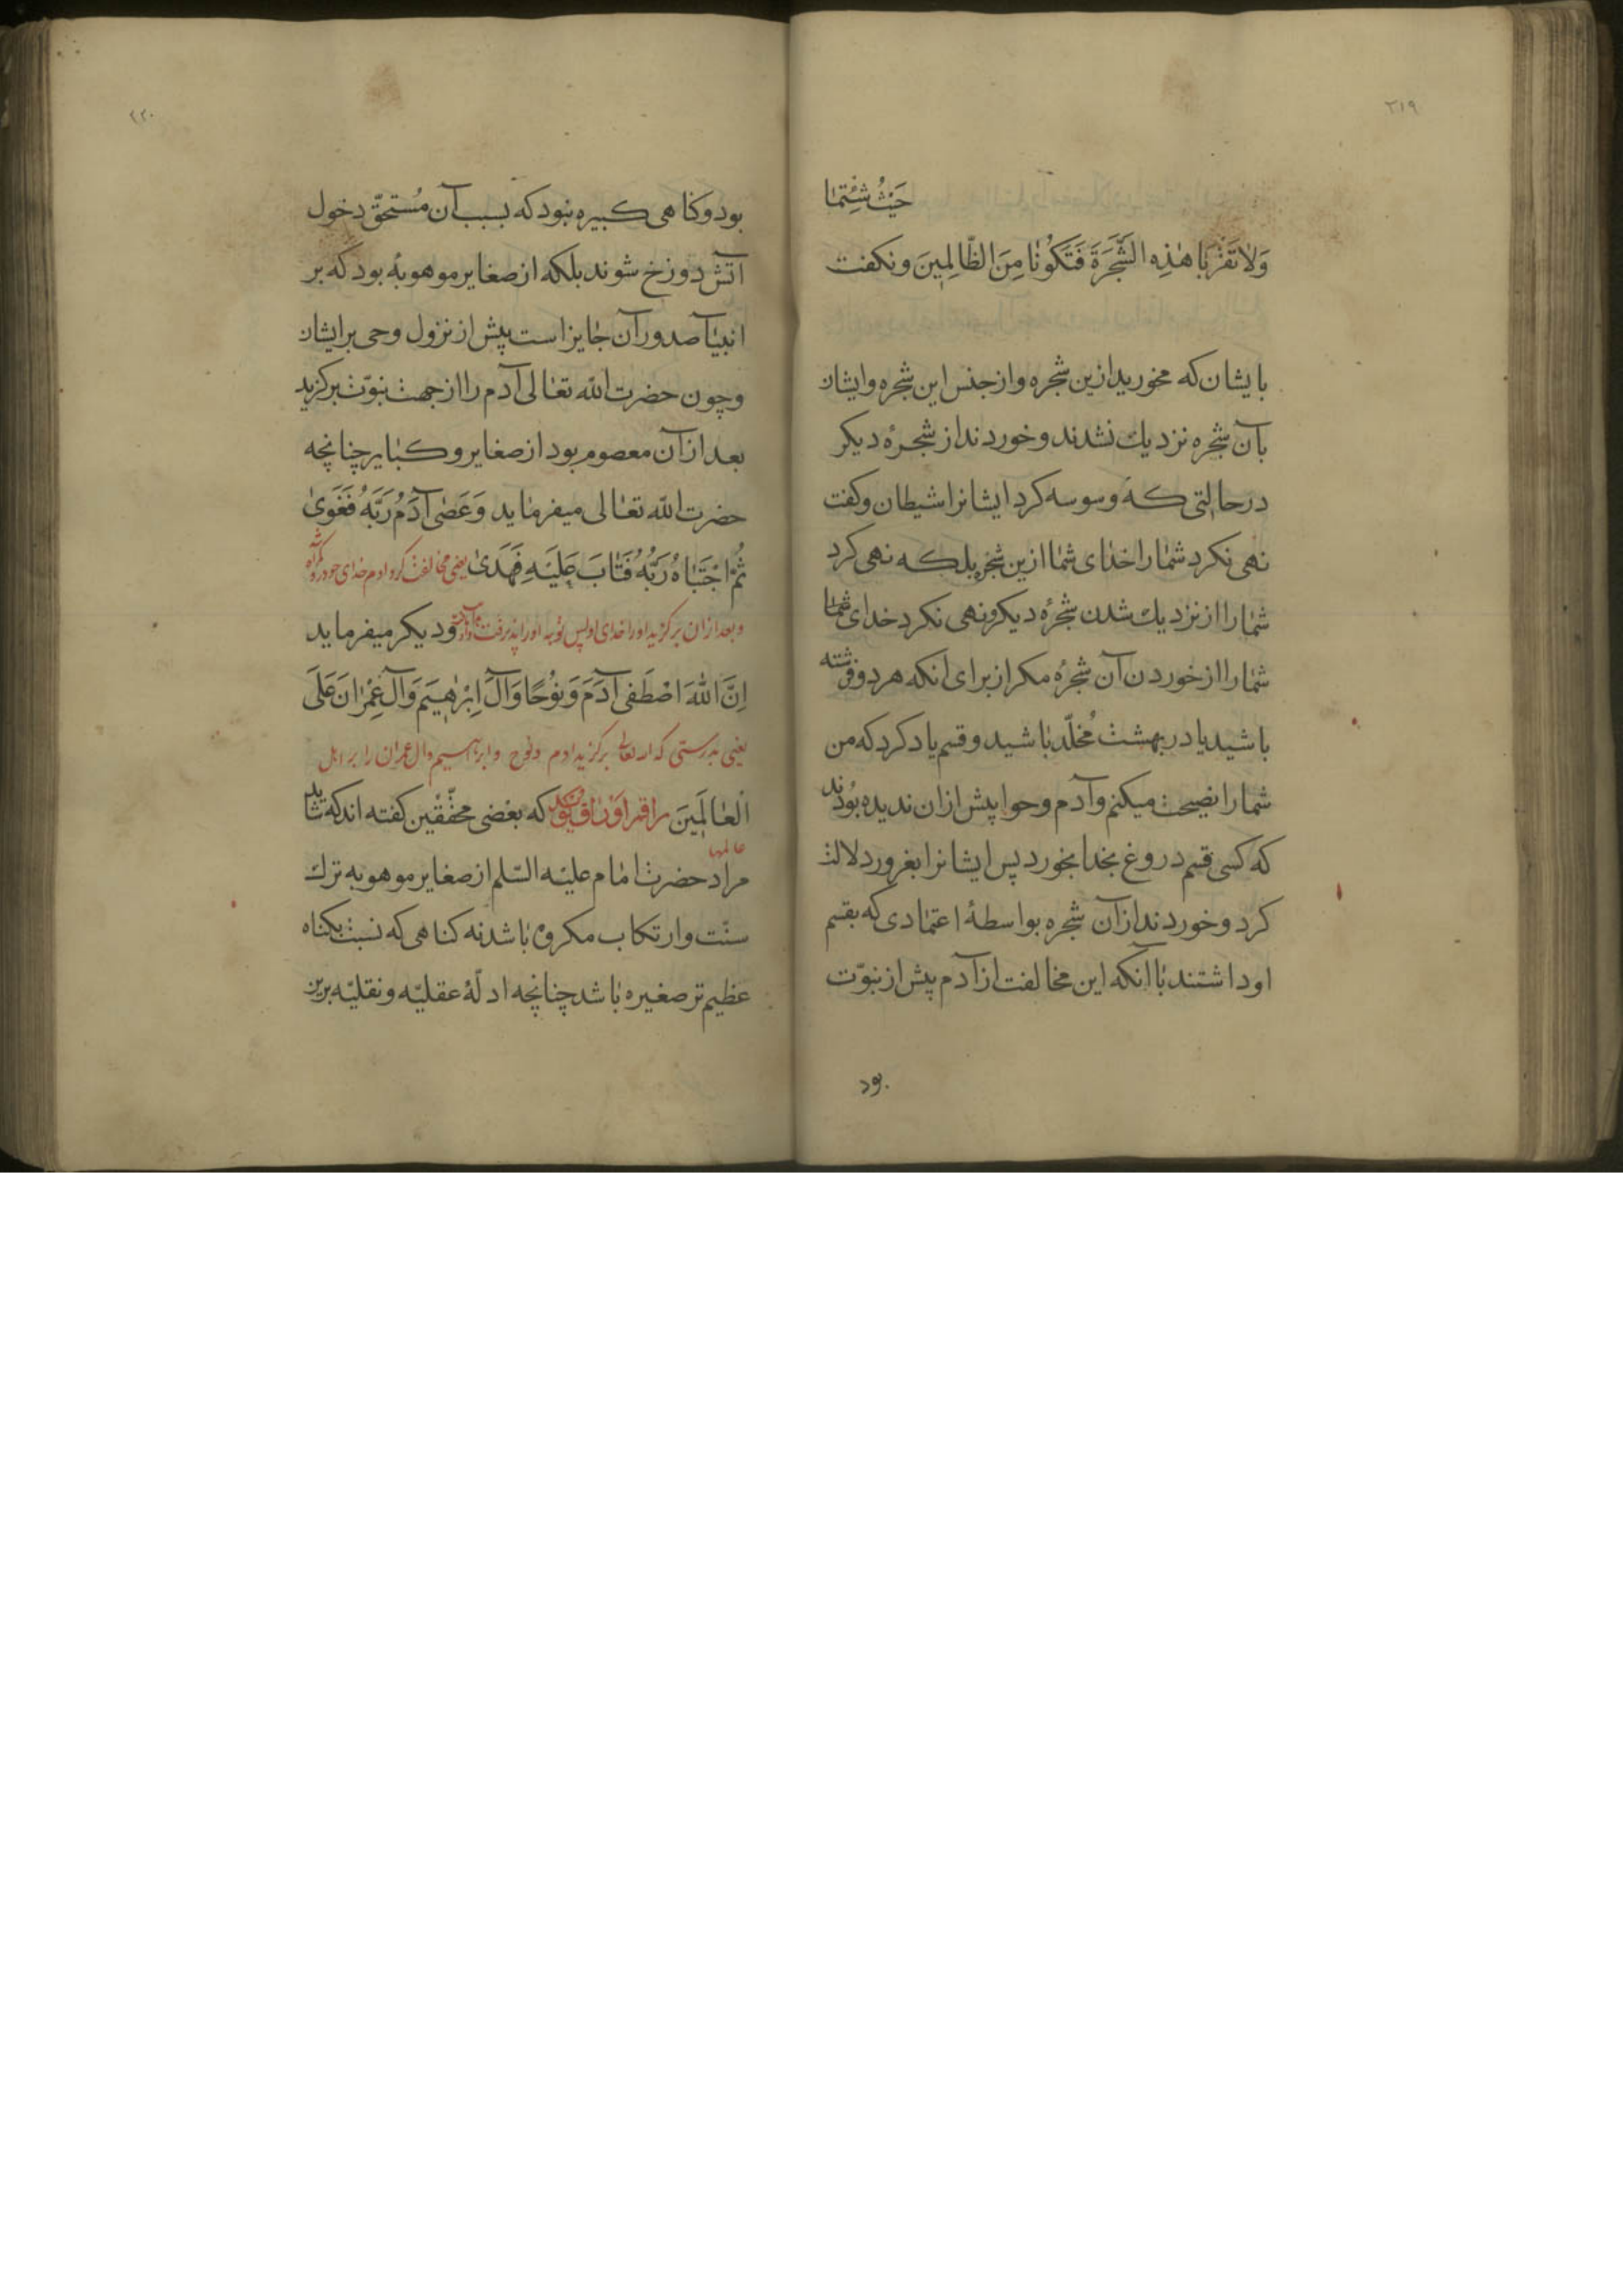 ٢١٩
حَيْثُ شِئْتُمٰا
وَلاٰ تَقْرَبٰا هٰذِهِ الشَّجَرَةَ فَتَكُونٰا مِنَ الظّٰالِمِينَ ونكفت
بایشان که مخورید ازین شجره واز جنس این شجره وایشان
بآن شجره نزدیك نشدند وخوردند از شجرهٔ دیکر
درحالتی که وسوسه کرد ایشانرا شیطان وکفت
نهی نکرد شمٰا را خدای شمٰا ازین شجره بلکه نهی کرد
شمٰا را از نزدیك شدن شجرهٔ دیکر ونهی نکرد خدای شمٰا
شمٰا را از خوردن آن شجرهٔ مکر از برای انکه هر دو فرشته
باشید یا در بهشت مُخلّد بٰاشید وقسم یاد کرد که من
شمارا نصیحت میکنم وآدم وحوا پیش ازان ندیده بودند
که کسی قسم دروغ بخدا بخورد پس ایشانرا بغرور دلالت
کرد وخوردند ازآن شجره بواسطهٔ اعتمٰادی که بقسم
او داشتند بٰا آنکه این مخالفت از آدم پیش از نبوّت
بود
٢٢٠
بود وکنٰاهی کبیره نبود که بسبب آن مُستحقّ دخول
آتش دوزخ شوند بلکه از صغایر موهوبهٔ بود که بر
انبیٰآ صدور آن جٰایز است پیش از نزول وحی برایشان
وچون حضرت اللّه تعٰالی آدم را از جهت نبوّت برکزید
بعد ازآن معصوم بود از صغایر وکبٰایر چنانچه
حضرت اللّه تعٰالی میفرمٰاید وَعَصٰى آدَمُ رَبَّهُ فَغَوىٰ
ثُمَّ اجْتَبٰاهُ رَبُّهُ فَتٰابَ عَلَيْهِ فَهَدىٰ یعنی مخالفت کرد ادم خدای خود را وکمراه شد
وبعد ازان برکزید اورا خدای او پس توبه اورا پذیرفت ودیکر میفرماید
اِنَّ اللّٰهَ اصْطَفى آدَمَ وَنُوحًا وَآلَ اِبْرٰهِيمَ وَآلَ عِمْرٰانَ عَلَى
یعنی بدرستی که الله تعالی برکزید ادم ونوح وابراهیم وال عمران را بر اهل
الْعٰالَمِينَ که بعضی محقّقین کفته اند که شاید
عالمها
مراد حضرت امٰام علیه السّلم از صغایر موهوبه ترك
سنّت وارتکاب مکروه بٰاشد نه کناهی که نسبت بکناه
عظیم تر صغیره بٰاشد چنانچه ادلّهٔ عقلیّه ونقلیّه برین